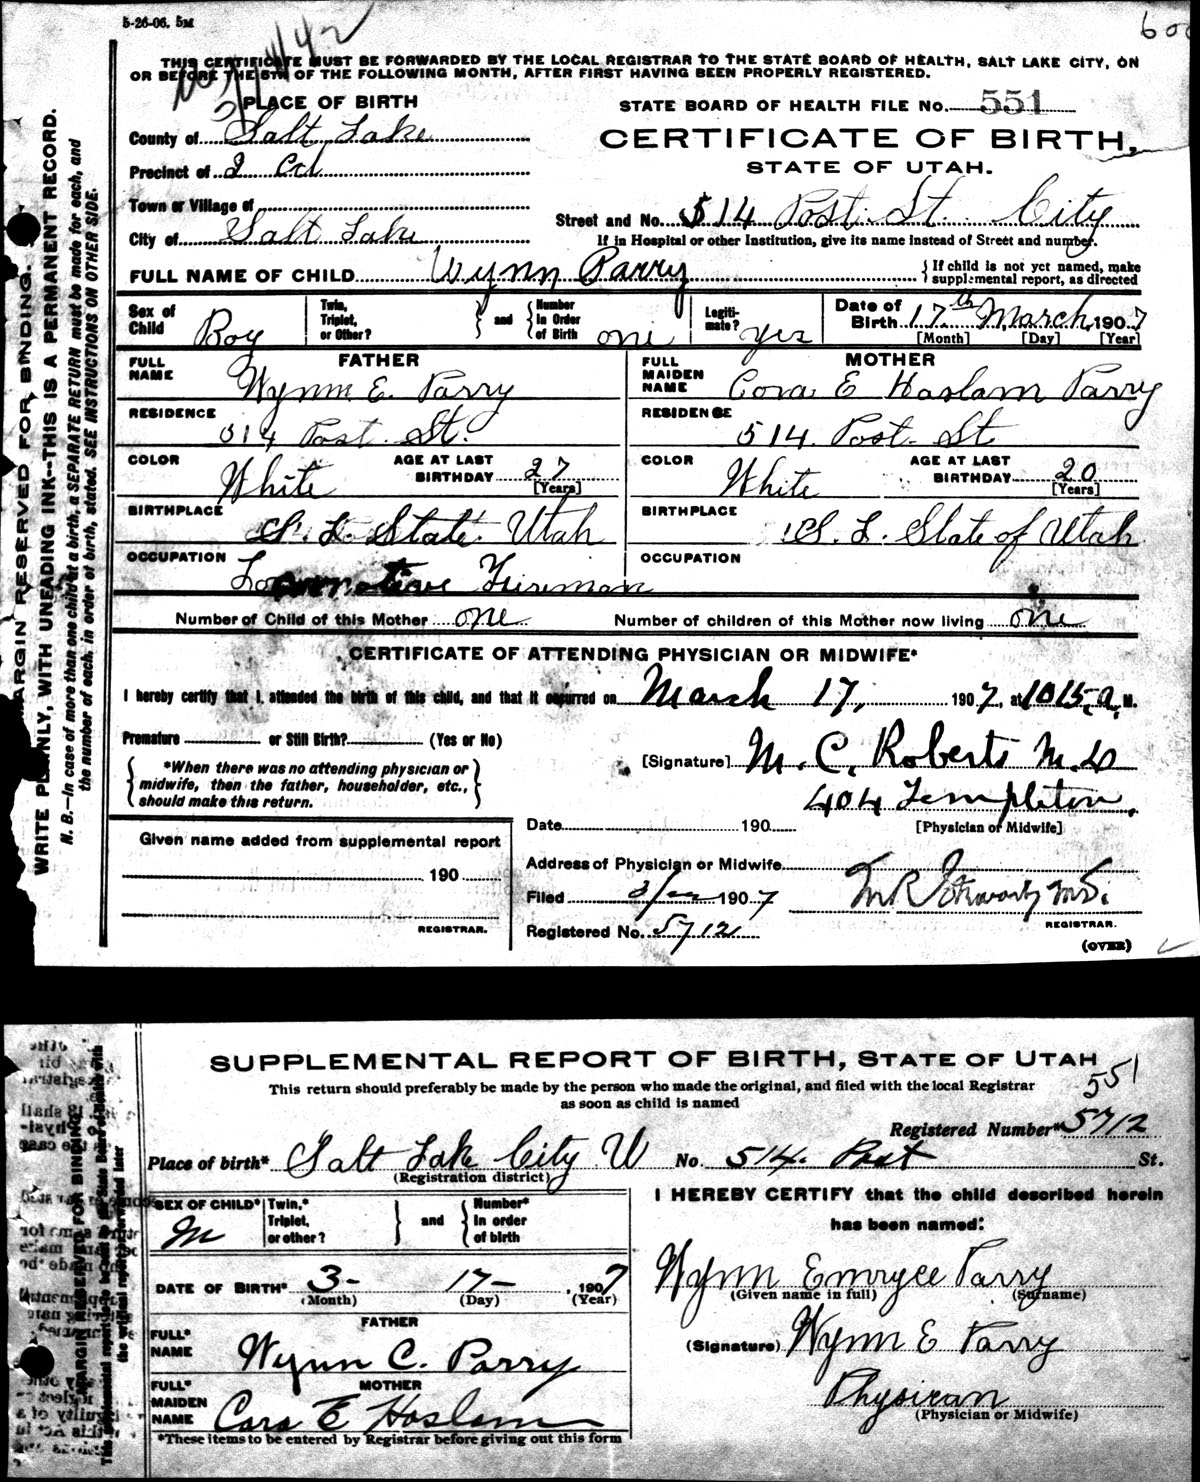 5-26-06. 5M
THIS CERTIFICATE MUST BE FORWARDED BY THE LOCAL REGISTRAR TO THE STATE BOARD OF HEALTH, SALT LAKE CITY, ON
OR BEFORE THE 5TH OF THE FOLLOWING MONTH, AFTER FIRST HAVING BEEN PROPERLY REGISTERED.
PLACE OF BIRTH
STATE BOARD OF HEALTH FILE No. 551
County of Salt Lake
CERTIFICATE OF BIRTH.
STATE OF UTAH.
Precinct of
Town or Village of
Street and No. 514 Post. St. City
City of Salt Lake
If in Hospital or other Institution, give its name instead of Street and number.
FULL NAME OF CHILD Wynn Parry
{ If child is not yet named, make
supplemental report, as directed
Sex of Child Boy
Twin, Triplet, or Other? } and { Number In Order of Birth one
Legitimate? yes
Date of Birth 17th March, 1907
[Month] [Day] [Year]
FATHER
FULL NAME Wynn E. Parry
MOTHER
FULL MAIDEN NAME Cora E Haslam Parry
RESIDENCE 514 Post. St.
RESIDENCE 514. Post- St
COLOR White AGE AT LAST BIRTHDAY 27 [Years]
COLOR White AGE AT LAST BIRTHDAY 20 [Years]
BIRTHPLACE S. L. State. Utah
BIRTHPLACE S. L. State of Utah
OCCUPATION Locomotive Fireman
OCCUPATION
Number of Child of this Mother one Number of children of this Mother now living one
CERTIFICATE OF ATTENDING PHYSICIAN OR MIDWIFE*
I hereby certify that I attended the birth of this child, and that it occurred on March 17, 1907, at 1015, a. M.
Premature or Still Birth? (Yes or No)
[Signature] M. C. Roberts M.D
404 Templeton.
[Physician or Midwife]
{ *When there was no attending physician or
midwife, then the father, householder, etc.,
should make this return. }
Date 190
Given name added from supplemental report
190
REGISTRAR.
Address of Physician or Midwife
Filed 1907
REGISTRAR.
Registered No. 5712
(OVER)
MARGIN RESERVED FOR BINDING.
WRITE PLAINLY, WITH UNFADING INK--THIS IS A PERMANENT RECORD.
N. B.—In case of more than one child at a birth, a SEPARATE RETURN must be made for each, and
the number of each, in order of birth, stated. SEE INSTRUCTIONS ON OTHER SIDE.
SUPPLEMENTAL REPORT OF BIRTH, STATE OF UTAH
551
This return should preferably be made by the person who made the original, and filed with the local Registrar
as soon as child is named
Registered Number* 5712
Place of birth* Salt Lake City U No. 514. Post St.
(Registration district)
SEX OF CHILD* M
Twin,* Triplet, or other? } and { Number* In order of birth
I HEREBY CERTIFY that the child described herein
has been named:
DATE OF BIRTH* 3- 17- , 1907
(Month) (Day) (Year)
Wynn Emryee Parry
(Given name in full) (Surname)
FATHER
FULL* NAME Wynn C. Parry
(Signature) Wynn E Parry
MOTHER
FULL* MAIDEN NAME Cora E Haslam
Physican
(Physician or Midwife)
*These items to be entered by Registrar before giving out this form
MARGIN RESERVED FOR BINDING